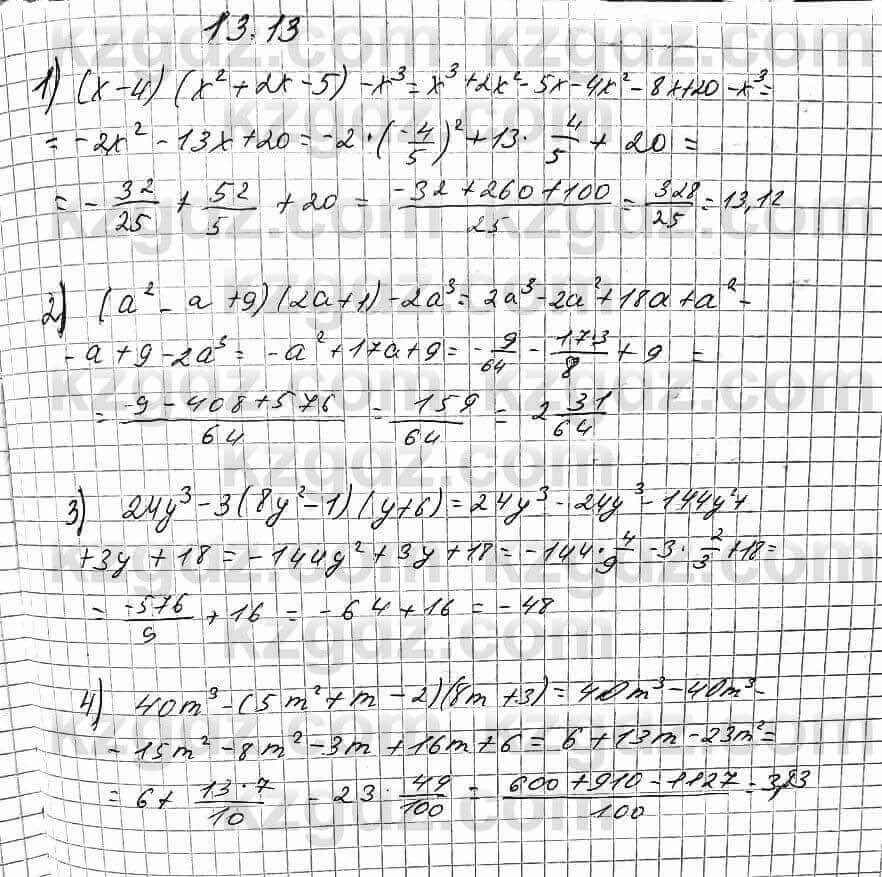 13.13
1) (x-4)(x²+2x-5)-x³=x³+2x²-5x-4x²-8x+20-x³=
=-2x²-13x+20=-2·(-4/5)²+13·4/5+20=
=-32/25+52/5+20=(-32+260+100)/25=328/25=13,12
2) (a²-a+9)(2a+1)-2a³=2a³-2a²+18a+a²-
-a+9-2a³=-a²+17a+9=-9/64-17·3/8+9=
=(-9-408+576)/64=159/64=2 31/64
3) 24y³-3(8y²-1)(y+6)=24y³-24y³-144y²+
+3y+18=-144y²+3y+18=-144·4/9-3·2/3+18=
=-576/9+16=-64+16=-48
4) 40m³-(5m²+m-2)(8m+3)=40m³-40m³-
-15m²-8m²-3m+16m+6=6+13m-23m²=
=6+13·7/10-23·49/100=(600+910-1127)/100=3,83
kzgdz.com